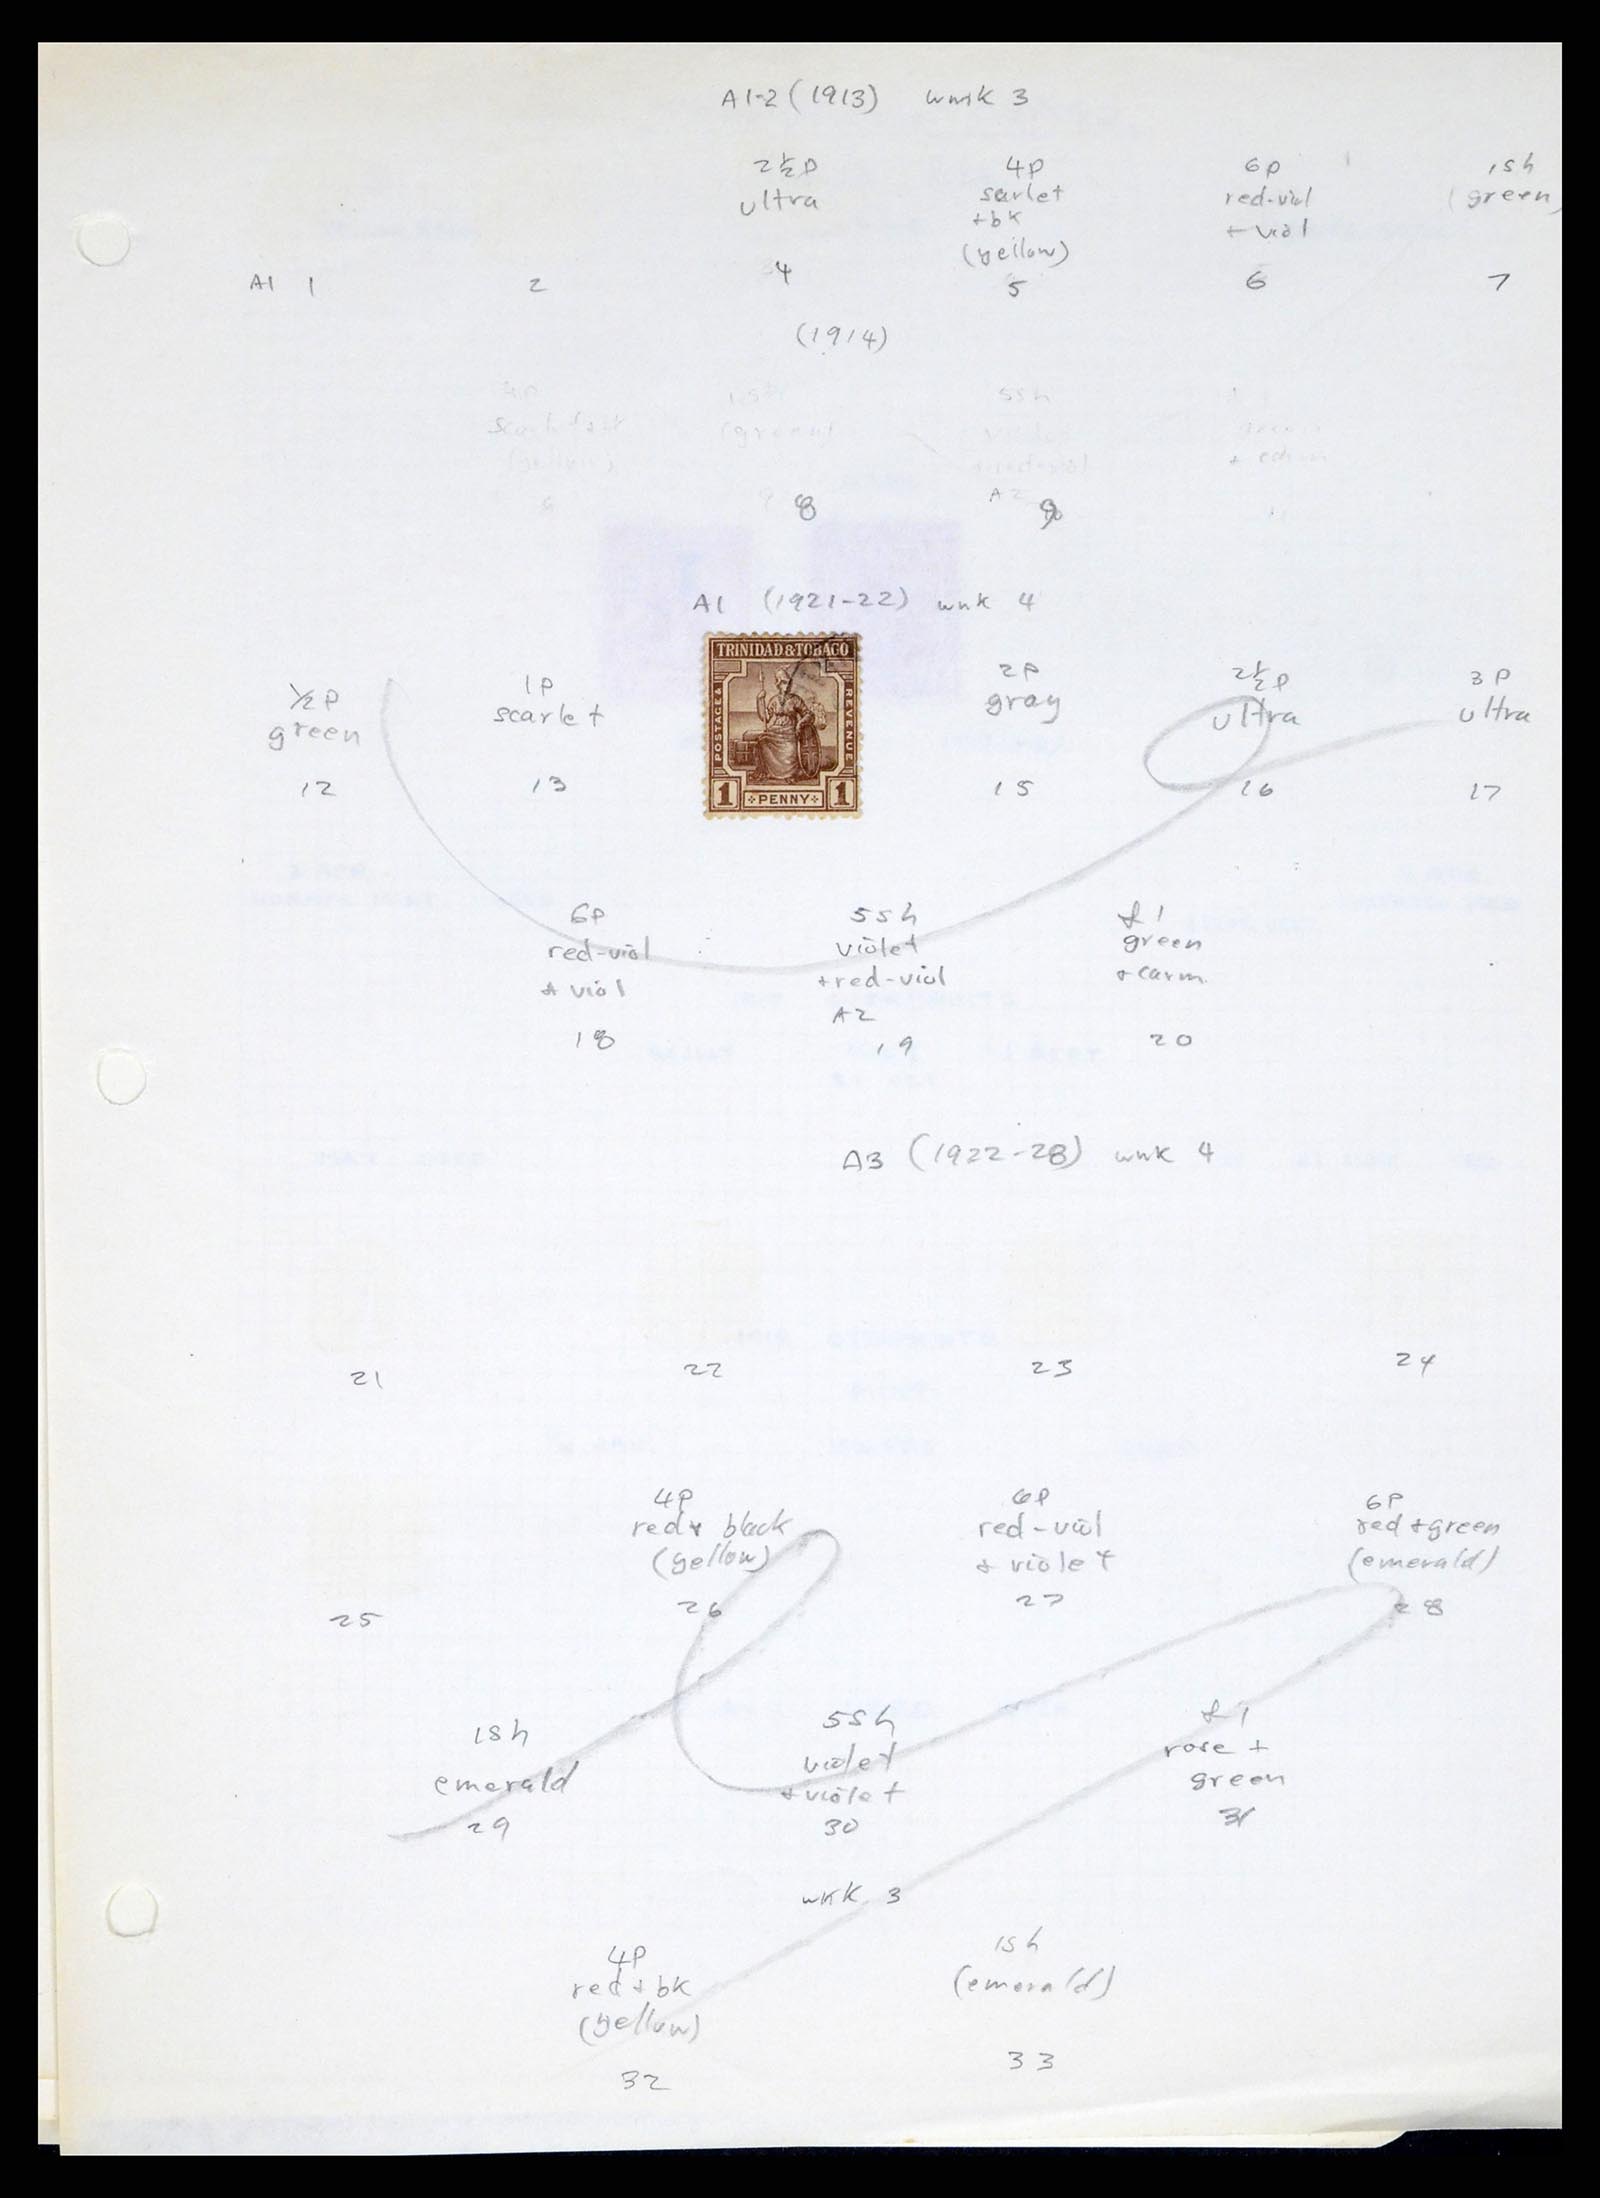 A1-2 (1913) wmk 3
2½p
ultra
4
4p
sarlet
+bk
(yellow)
5
6p
red-viol
+ viol
6
1sh
(green)
7
A1 1
2
(1914)
5sh
violet
+ red-viol
A2
8
9
A1 (1921-22) wmk 4
½p
green
12
1p
scarlet
13
TRINIDAD & TOBAGO
POSTAGE &
REVENUE
1 PENNY 1
2p
gray
15
2½p
ultra
16
3p
ultra
17
6p
red-viol
+ viol
18
5sh
violet
+red-viol
A2
19
£1
green
+ carm.
20
A3 (1922-28) wmk 4
21
22
23
24
25
4p
red + black
(yellow)
26
6p
red-viol
+ violet
27
6p
red + green
(emerald)
28
1sh
emerald
29
5sh
violet
+ violet
30
£1
rose +
green
31
wkk 3
4p
red + bk
(yellow)
32
1sh
(emerald)
33